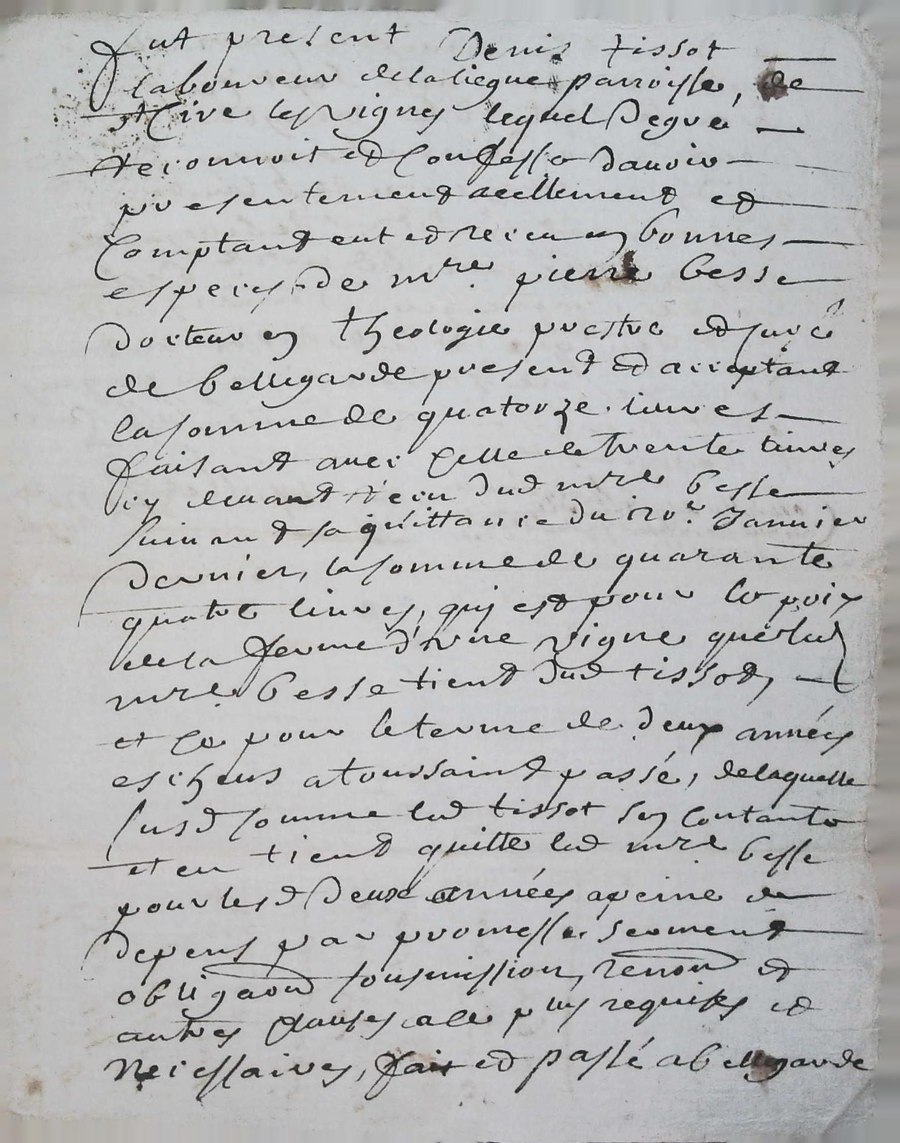 fut present Denis tissot
laboureur de la liegue parroisse, de
st Cire les vignes lequel de gré
reconnoit et Confesse d'avoir
presentement reellement et
Comptant eut et receu en bonnes
especes de mre. pierre besse
docteur en theologie prestre et curé
de bellegarde present et acceptant
la somme de quatorze livres
faisant avec celle de trente livres
cy devant receu dud mre besse
suivant sa quittance du Janvier
dernier, la somme de quarante
quatre livres, qui est pour le prix
de la ferme d'une vigne que led
mre besse tient dud tissot,
et Ce pour le terme de deux années
escheus a toussaint passé, de laquelle
susd somme led tissot se Contante
et en tient quitte led mre besse
pour lesd deux années a peine de
depens par promesse serment
obligaon sousmission, renon et
autres clauses a ce plus requises et
necessaires, fait et passé a bellegarde